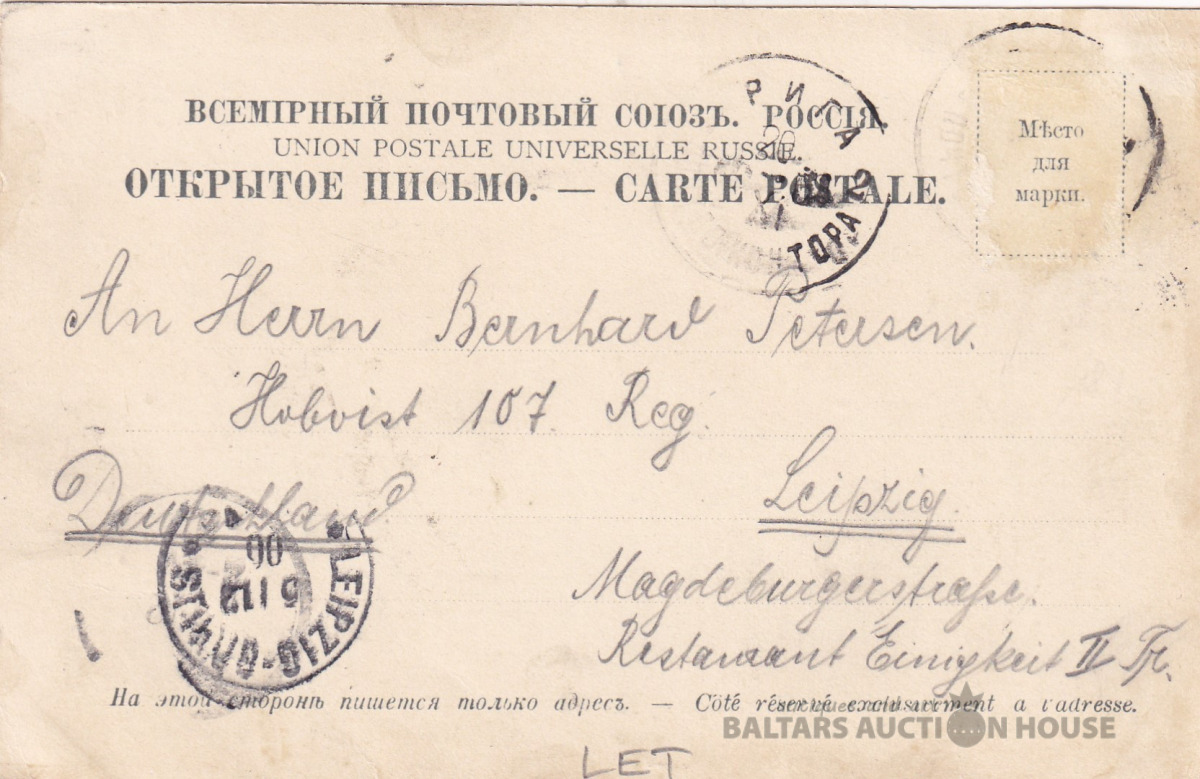 ВСЕМІРНЫЙ ПОЧТОВЫЙ СОЮЗЪ. РОССІЯ.
UNION POSTALE UNIVERSELLE RUSSIE.
ОТКРЫТОЕ ПИСЬМО. — CARTE POSTALE.
Мѣсто
для
марки.
РИГА
An Herrn Bernhard Petersen.
Hobvist 107. Reg.
Leipzig.
Deutschland
LEIPZIG-GOHLIS
5 12
00
Magdeburgerstraße.
Restaurant Einigkeit II Tr.
На этой сторонѣ пишется только адресъ. — Côté réservé exclusivement a l'adresse.
BALTARS AUCTION HOUSE
LET